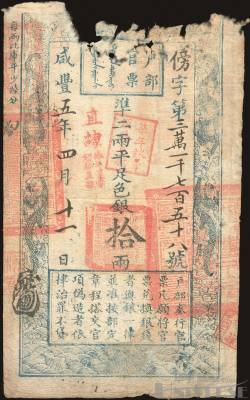 戶部
官票
傍字第二萬一千七百五十八號
準二兩平足色銀拾兩
直隸
咸豐五年四月十一日
每兩比庫平少陸分
戶部奏行官
票凡願將官
票兌換銀錢
者與銀一律
並准按部定
章程搭交官
項偽造者依
律治罪不貸